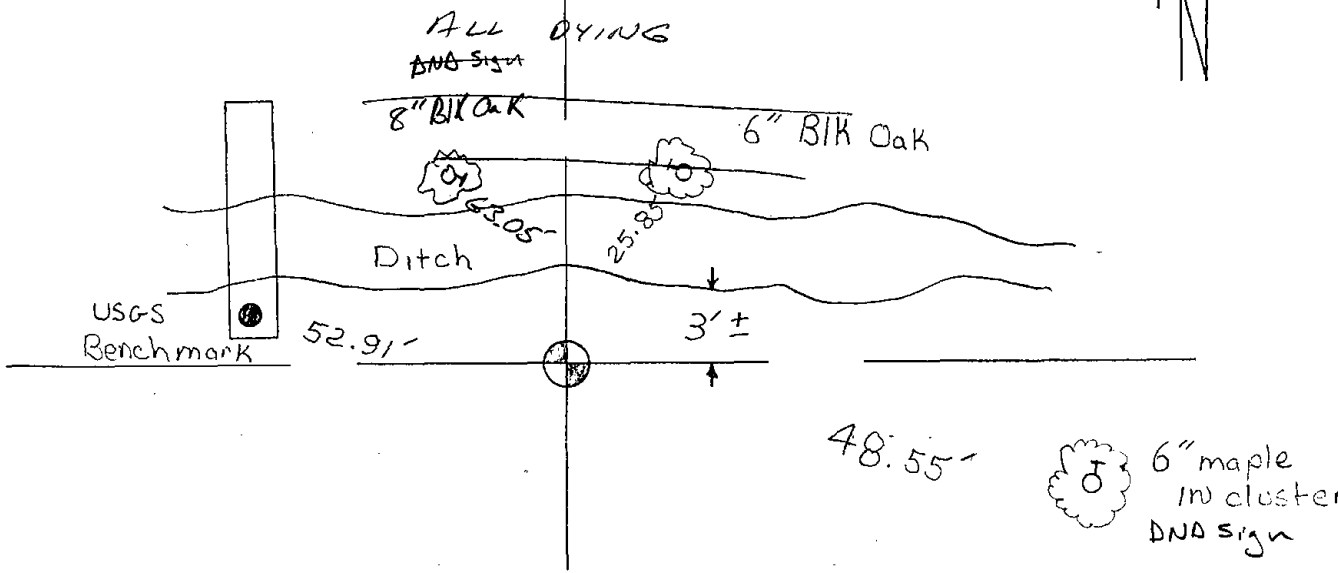 N
ALL DYING
DND Sign
8" Blk Oak
6" Blk Oak
63.05'
25.85'
Ditch
USGS
Benchmark
52.91'
3' ±
48.55'
6" maple
IN cluster
DND Sign